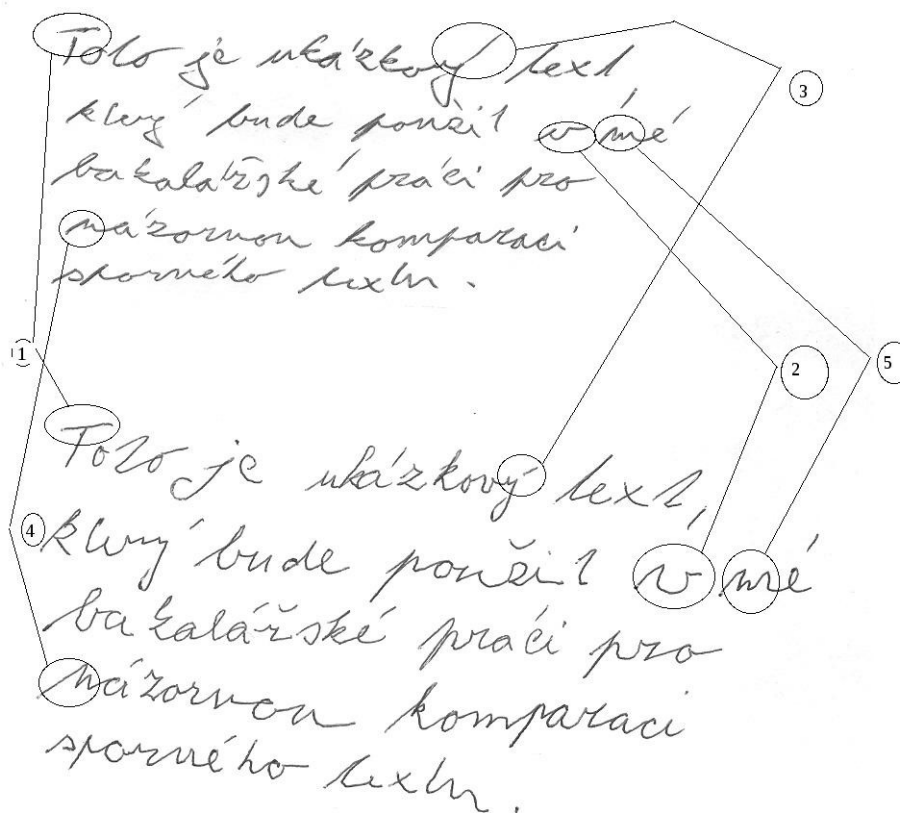 Toto je ukázkový text
který bude použit v mé
bakalářské práci pro
názornou komparaci
sporného textu.
Toto je ukázkový text,
který bude použit v mé
bakalářské práci pro
názornou komparaci
sporného textu.
1
2
3
4
5